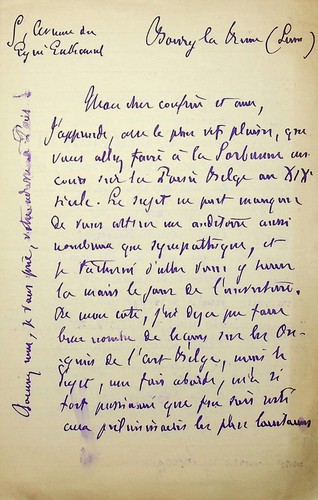 5, Avenue du
Parc Exthaunt
Bourg la Reine (Seine)
Mon cher confrère et ami,
J'apprends, avec le plus vif plaisir, que
vous allez faire à la Sorbonne un
cours sur la Poésie Belge au XIXe
siècle. Le sujet ne peut manquer
de vous attirer un auditoire aussi
nombreux que sympathique, et
je tâcherai d'aller vous y serrer
la main le jour de l'ouverture.
De mon côté, j'ai déjà pu faire
bon nombre de leçons sur les Ori-
gines de l'art Belge, mais le
sujet, une fois abordé, m'a si
fort passionné que j'en suis resté
aux préliminaires les plus lointains
Donnez moi, je vous prie, votre adresse à Paris !